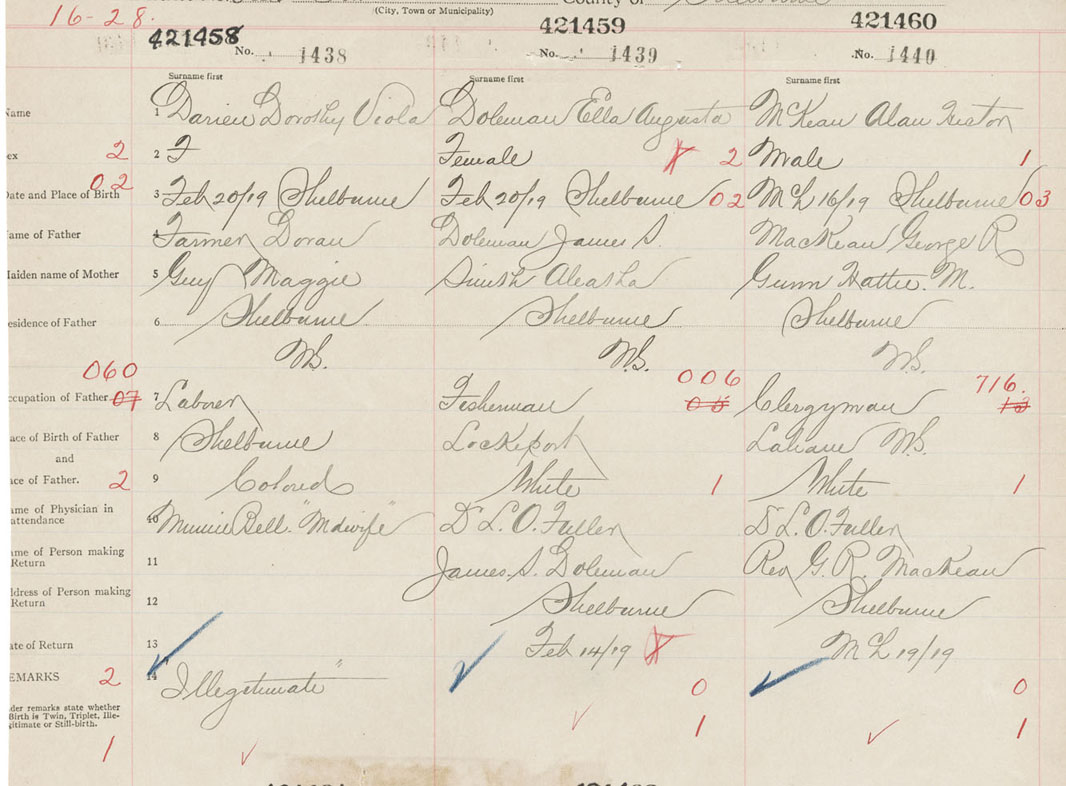 (City, Town or Municipality)
County of
16-28.
421458
421459
421460
No. 1438
No. 1439
No. 1440
Surname first
Surname first
Surname first
Name
1 Darien Dorothy Viola
Doleman Ella Augusta
McKean Alan
ex 2
2 F
Female 2
Male 1
02
Date and Place of Birth
3 Feb 20/19 Shelburne
Feb 20/19 Shelburne 02
Mch 16/19 Shelburne 03
ame of Father
4 Farmer Doran
Doleman James S.
MacKean George R
aiden name of Mother
5 Guy Maggie
Smith Aleatha
Gunn Hattie. M.
esidence of Father
6 Shelburne
Shelburne
Shelburne
N.S.
N.S.
N.S.
060
006
716.
ccupation of Father 07
7 Laborer
Fisherman
Clergyman
ace of Birth of Father
8 Shelburne
Lockeport
Lahave N.S.
and
ace of Father. 2
9 Colored
White 1
White 1
ame of Physician in
attendance
10 Minnie Bell. "Midwife"
Dr L. O. Fuller
Dr L. O. Fuller
ame of Person making
Return
11
James. S. Doleman
Rev G. R. MacKean
ddress of Person making
Return
12
Shelburne
Shelburne
ate of Return
13
Feb 14/19
Mch 19/19
EMARKS 2
14 Illegitimate
0
0
der remarks state whether
Birth is Twin, Triplet, Ille-
gitimate or Still-birth.
1
1
1